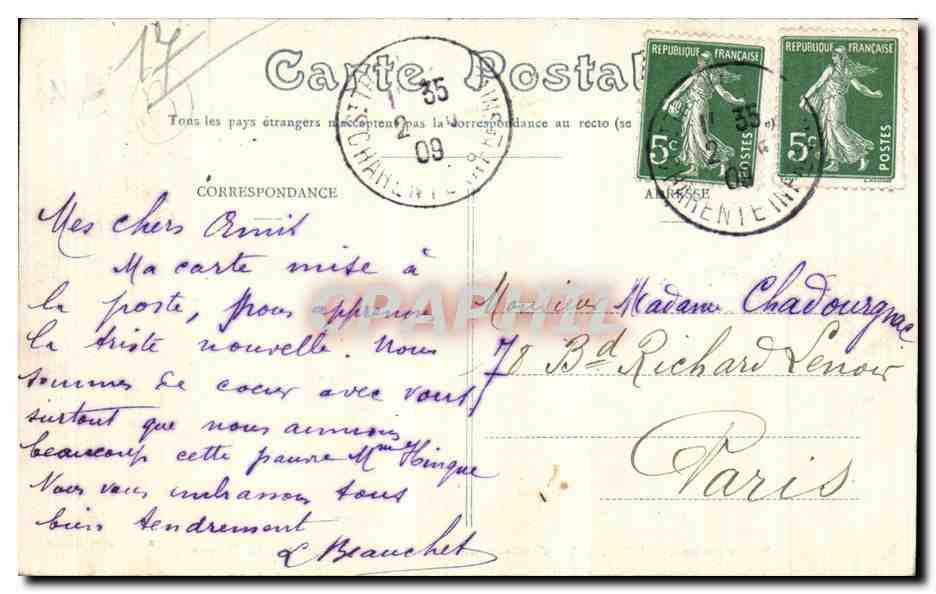 17
Carte Postale
Tous les pays étrangers n'acceptent pas la correspondance au recto (se
CORRESPONDANCE
ADRESSE
REPUBLIQUE FRANÇAISE
5c
POSTES
REPUBLIQUE FRANÇAISE
5c
POSTES
35
2
09
CHARENTE INF
35
2
09
CHARENTE INF
Mes chers Amis
Ma carte mise à
la poste, nous apprenons
la triste nouvelle. Nous
sommes de coeur avec vous
surtout que nous aimions
beaucoup cette pauvre Mme Hinque
Nous vous embrassons tous
bien tendrement
L Beauchet
Monsieur Madame Chadourgnac
78 Bd Richard Lenoir
Paris
CPAPHIL